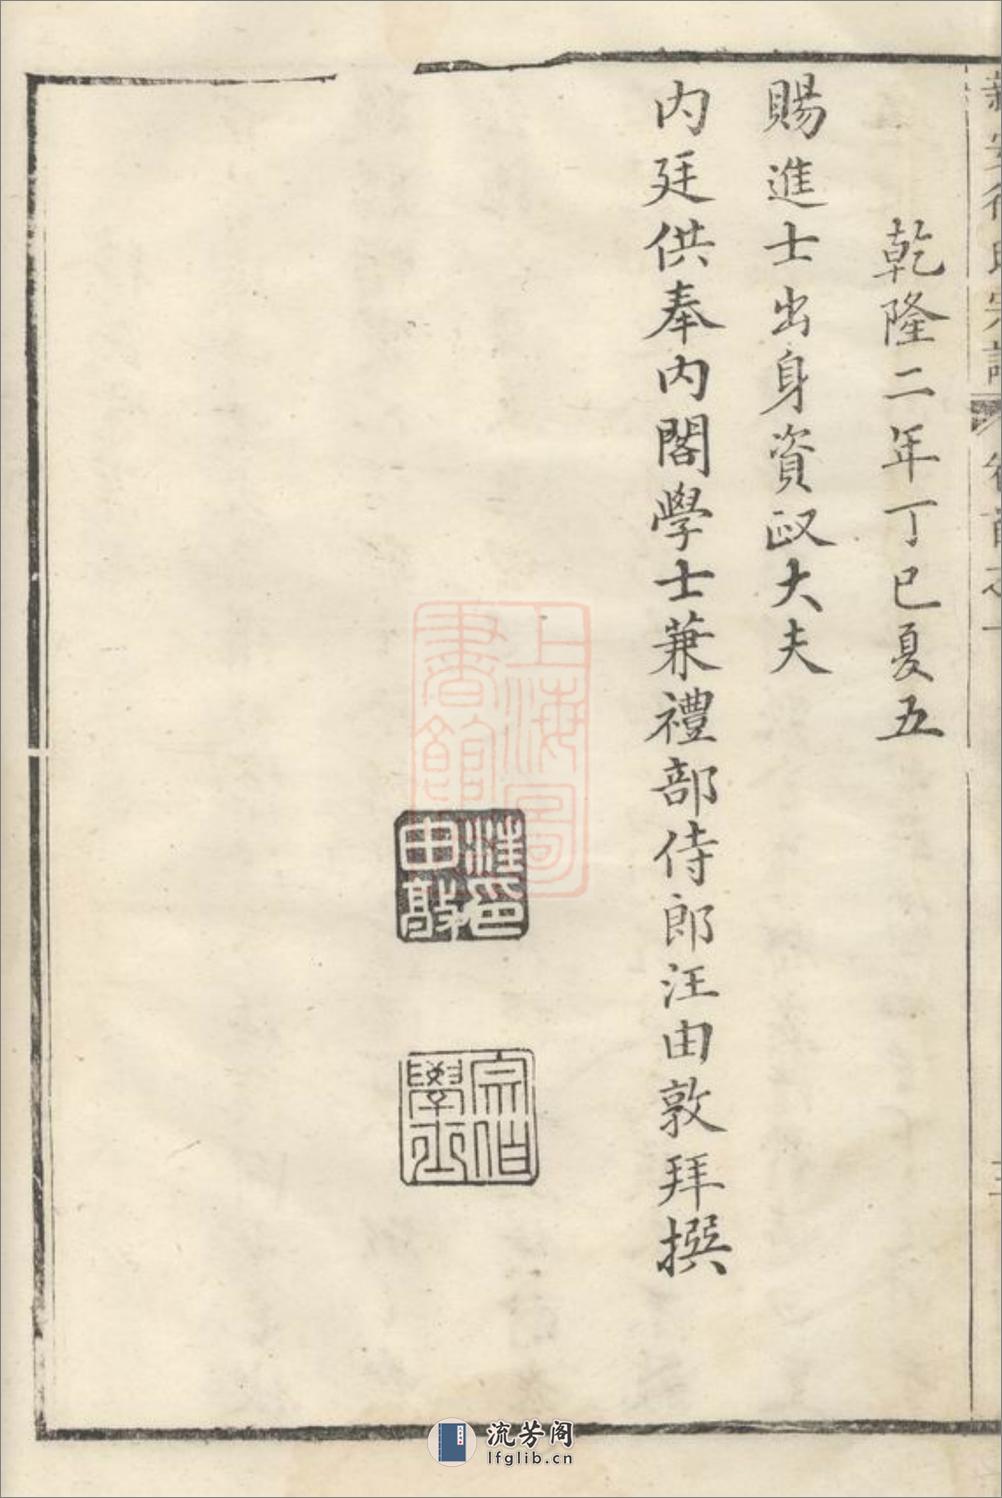 新安徐氏宗譜 卷首之一
三
乾隆二年丁巳夏五
賜進士出身資政大夫
内廷供奉内閣學士兼禮部侍郎汪由敦拜撰
汪印由敦
宗伯學士
上海圖書館
流芳阁
lfglib.cn